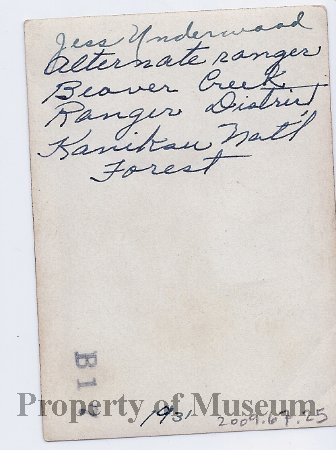 Jess Underwood
Alternate ranger
Beaver Creek
Ranger District
Kaniksu Nat'l
Forest
B1
Property of Museum.
1931 2009.67.25